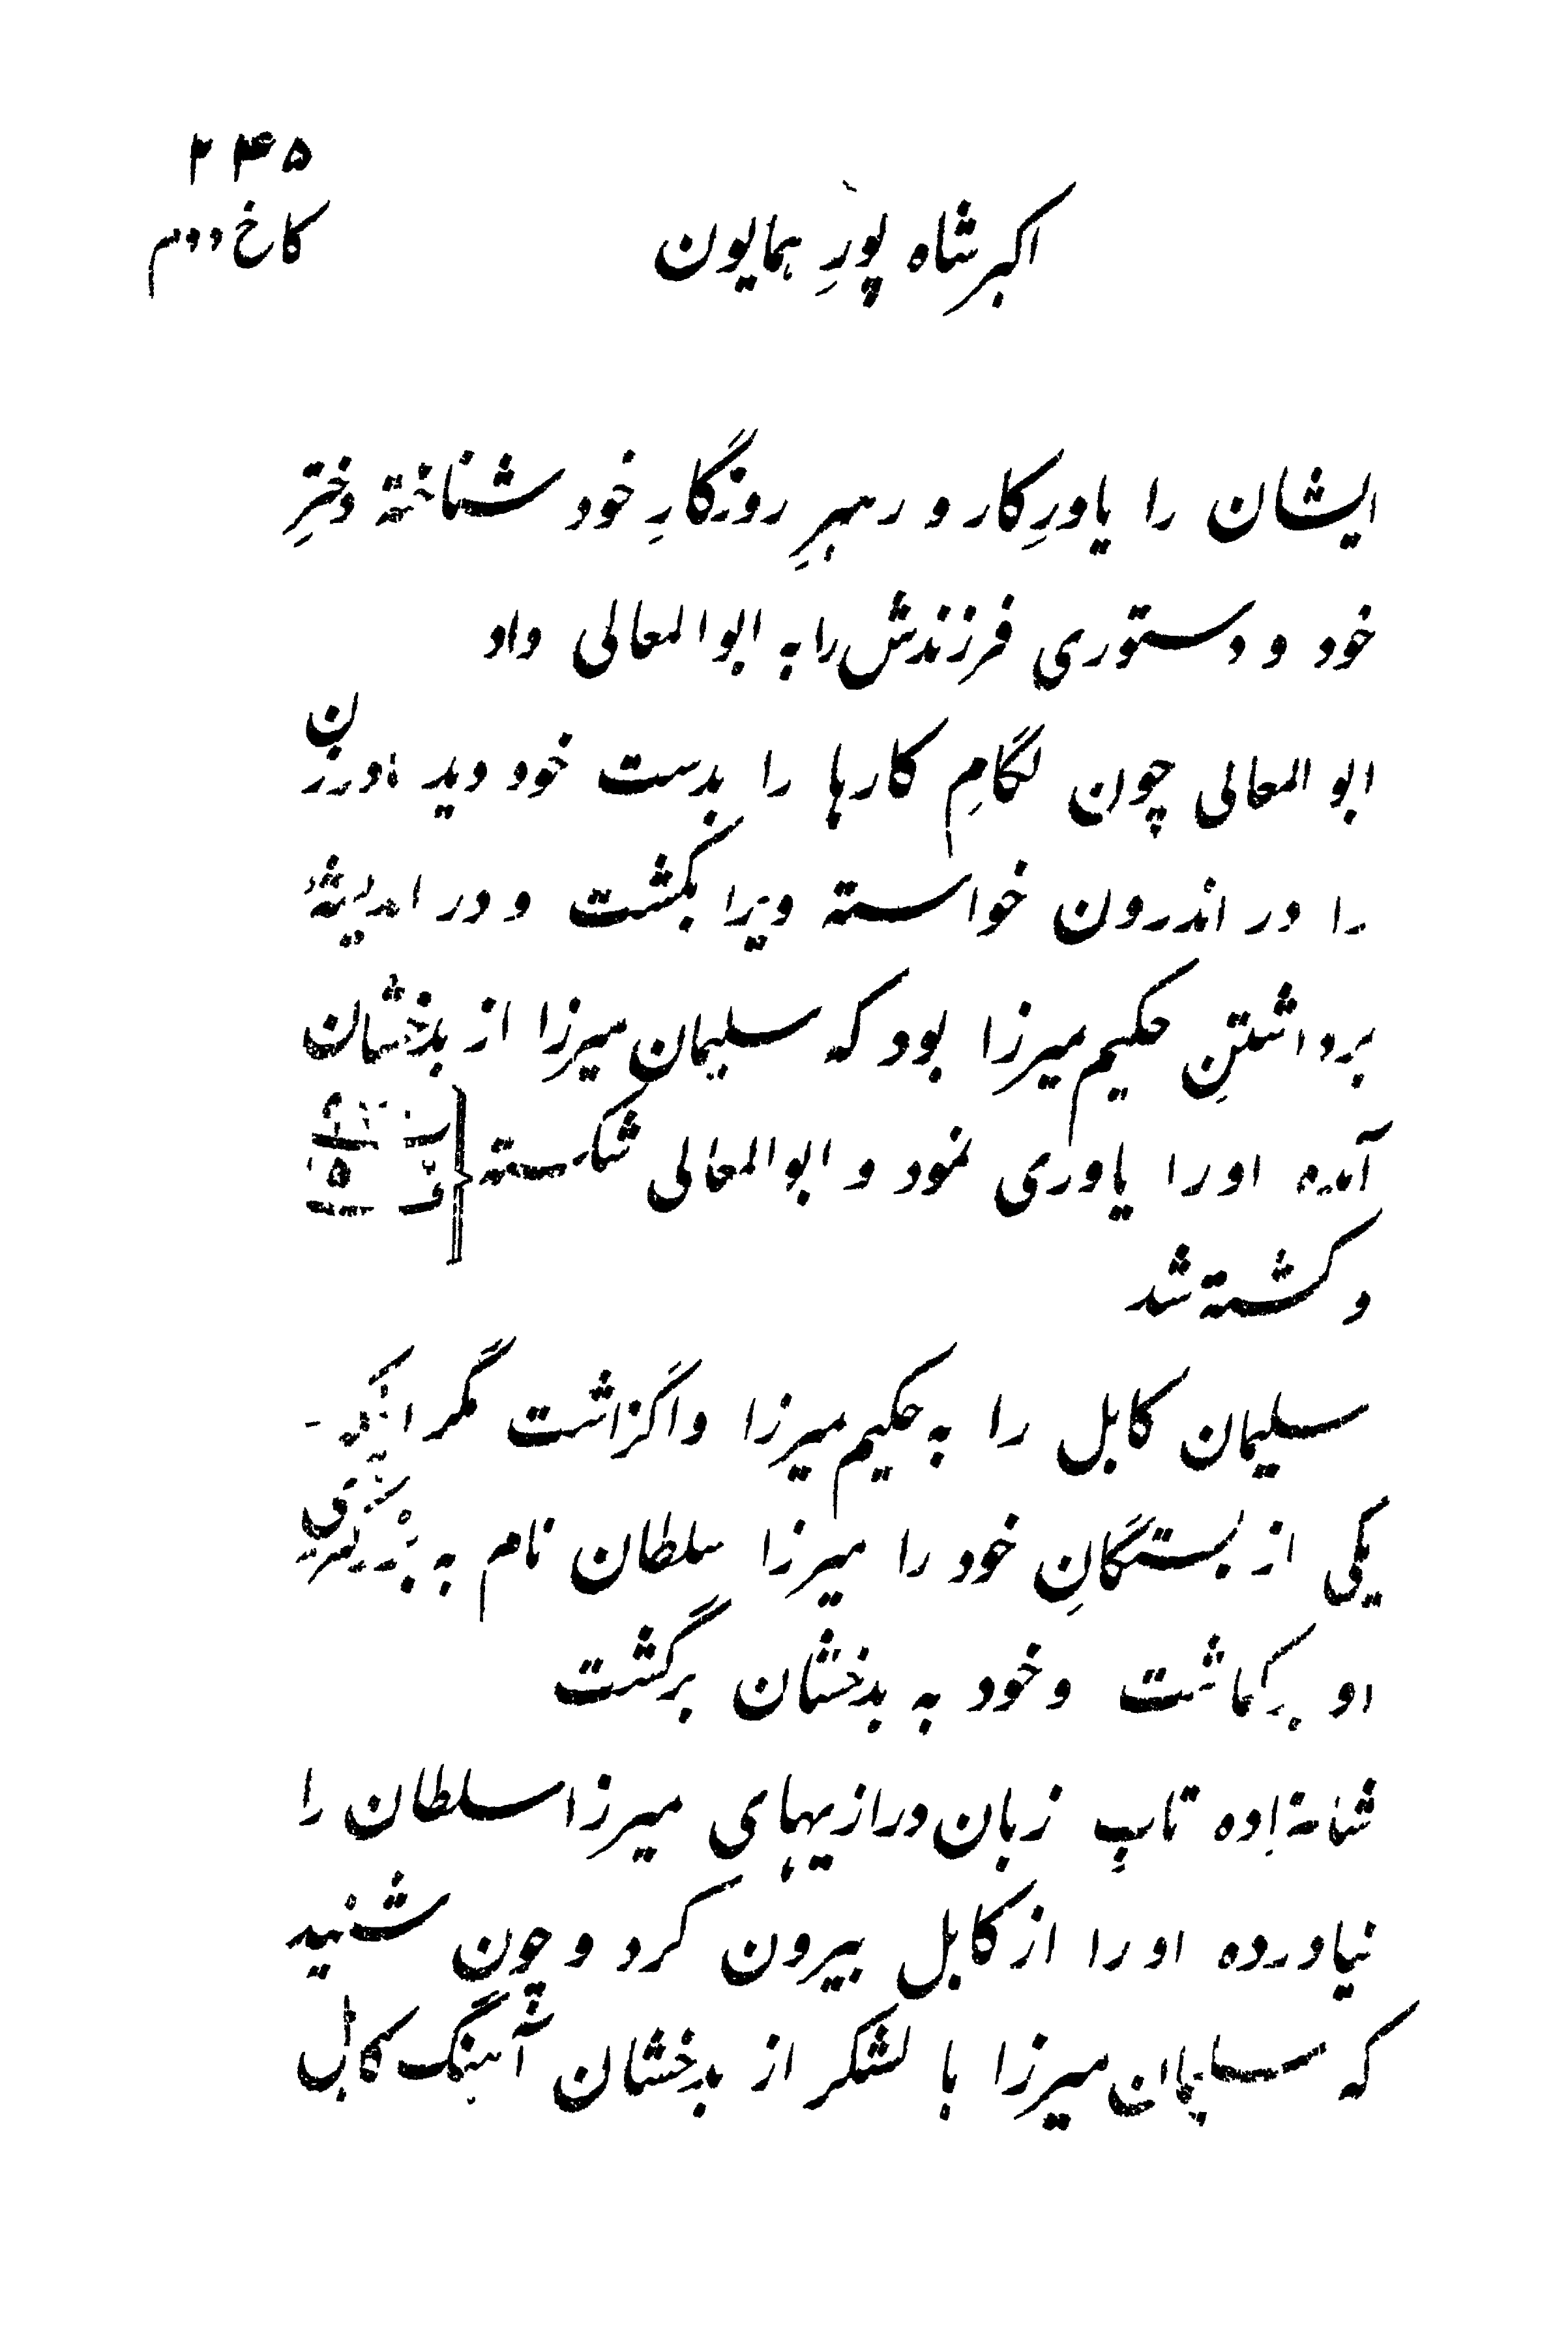 ۲۴۵
کاخ دوم
اکبر شاه پورِ همایون
ایشان را یاورِ کار و رهبرِ روزگارِ خود شناخته دخترِ
خود و دستوری فرزندش را به ابوالمعالی داد
ابوالمعالی چون لگامِ کارها را بدست خود دید مادر زن
را در اندرون خواسته ویرا بکشت و در اندیشهٔ
برداشتنِ حکیم میرزا بود که سلیمان میرزا از بدخشان
آمده او را یاوری نمود و ابوالمعالی شکسته
و کشته شد
سلیمان کابل را به حکیم میرزا واگزاشت مگر اینکه
یکی از بستگانِ خود را میرزا سلطان نام به
او برگماشت و خود به بدخشان برگشت
شاهزاده تابِ زبان درازیهای میرزا سلطان را
نیاورده او را از کابل بیرون کرد و چون شنید
که سلیمان میرزا با لشکر از بدخشان آهنگ کابل